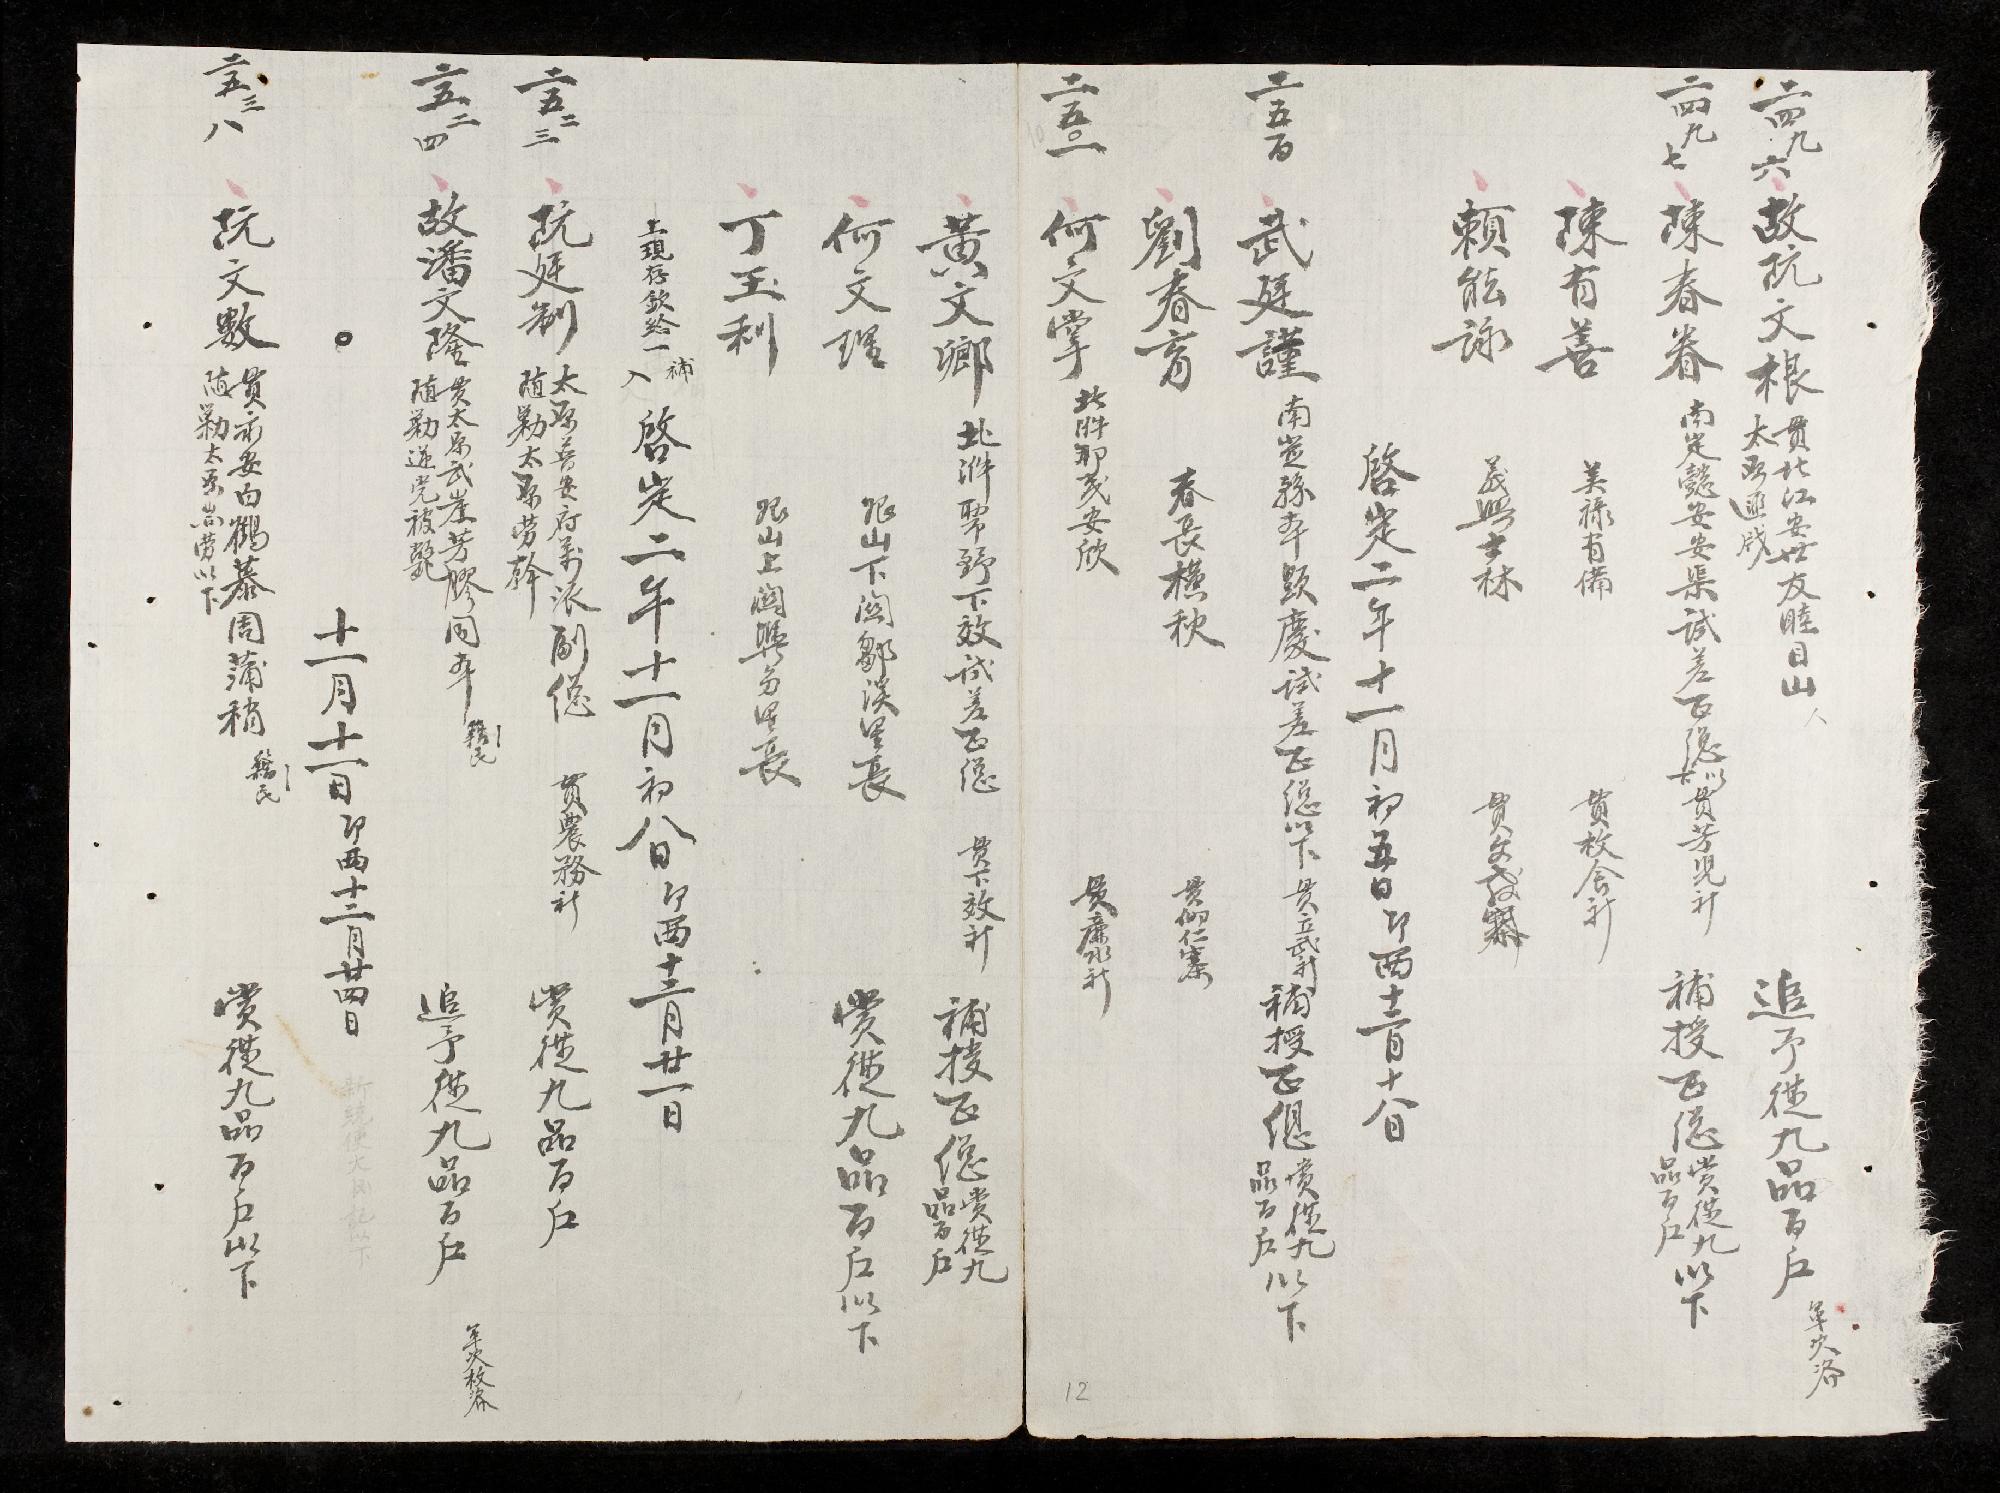 二四九六
故阮文根 貫北江安世友睦目山人
太原逦戍
追予從九品百戶
單次洛
二四九七
陳春眷 南定懿安安渠試差正總以下 貫芳児社
補授正總 賞從九品百戶以下
陳有善 美祿有備 貫枚舍社
賴能詠 義興士林
啓定二年十一月初五日即西十二月十八日
二五百
武廷謹 南定務本顯慶試差正總以下 貫立武社
補授正總 賞從九品百戶以下
劉春育 春長橫秋 貫仰仁寨
二五〇一
何文掌 貫廉水社
黃文鄉 下效試差正總 貫下效社
補授正總 賞從九品百戶
何文理 下閭鄒淡里長
賞從九品百戶以下
丁玉利 上閭興分里長
上現存欽給一補入
啓定二年十一月初八日即西十二月廿一日
二五二三
阮廷制 太原普安府萬派副總 貫農務社
隨勦太原勞幹
賞從九品百戶
二五二四
故潘文隆 貫太原武崖芳膠同本
隨勦逆党被斃
籍民
追予從九品百戶
單次枚洛
十一月十一日即西十二月廿四日
二五三八
阮文數 貫永安白鶴慕周蒲稍
隨勦太原出勞以下
籍民
賞從九品百戶以下
12